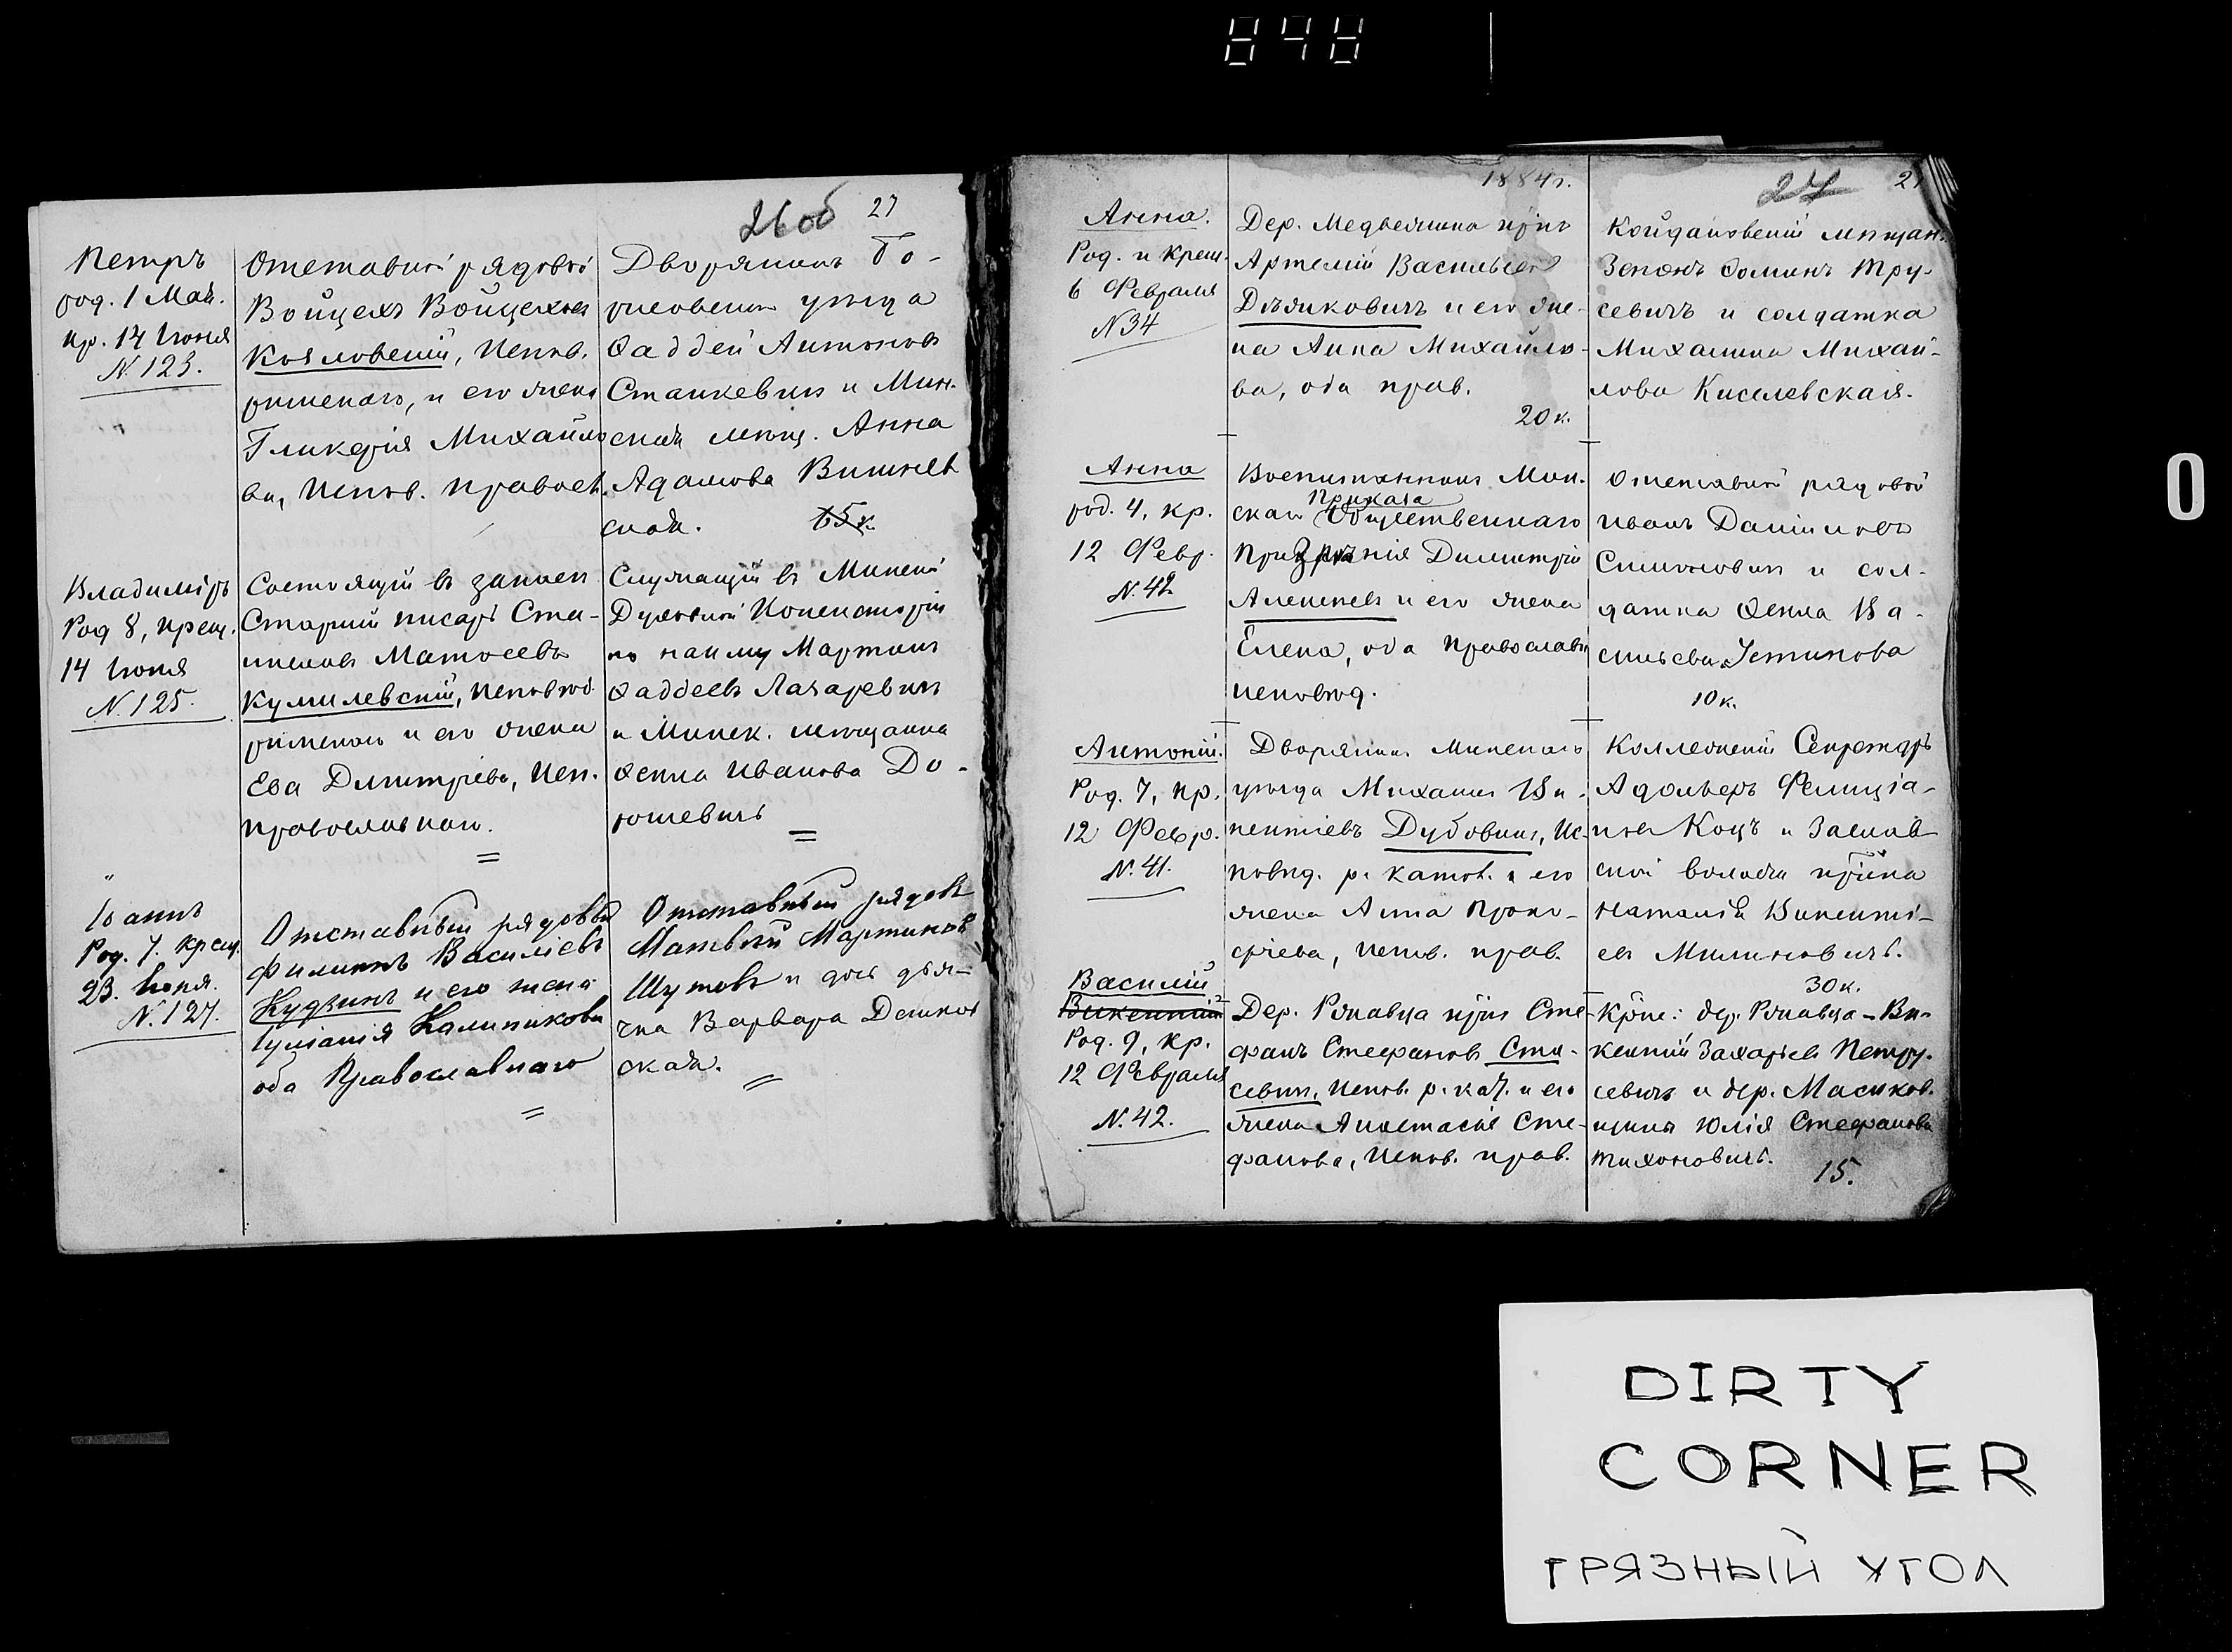 848
26 об
27
Петръ
род. 1 Мая.
кр. 14 Іюня
N. 123.
Отставной рядовой
Войцехъ Войцеховъ
Козловскій, испов.
римскаго, и его жена
Гликерія Михайло
ва, испов. правосл.
Дворянинъ Бо-
рисовскаго уѣзда
Ѳаддей Антоновъ
Станкевичъ и Мин.
ская мѣщ. Анна
Адамова Вишнев
ская.
65 к.
Владиміръ
Род 8, крещ.
14 Іюня
N. 125.
Состоящій въ запасѣ
Старшій писарь Ста-
ниславъ Матвеевъ
Кумилевскій, исповѣд.
римскаго и его жена
Ева Дмитріева, исп.
православнаго.
Служащій въ Минской
Духовной Консисторіи
по найму Мартинъ
Ѳаддеевъ Лазаревичъ
и Минск. мѣщанка
Ѳекла Иванова До-
рошевичъ
Іоаннъ
Род. 7. крещ.
23. Іюня.
N. 127.
Отставный рядовый
Филиппъ Василіевъ
Кудзинъ и его жена
Іуліанія Калиникова
оба Православнаго
Отставный рядов
Матвѣй Мартиновъ
Шутовъ и дочь дья-
чка Варвара
ская.
1884 г.
27
Анна.
Род. и крещ.
6 Февраля
N 34
Дер. Медвежина кр-нъ
Артемій Васильевъ
Дѣдиковичъ и его же-
на Анна Михайло-
ва, оба прав.
20 к.
Койдановскій мѣщан.
Зенонъ Ѳоминъ Тру-
севичъ и солдатка
Михалина Михай-
лова Киселевская.
Анна
род. 4, кр.
12 Февр.
N. 42
Воспитанникъ Мин.
Приказа
скаго Общественнаго
Призрѣнія Димитрій
Алексѣевъ и его жена
Елена, оба православн
исповѣд.
Отставной рядовой
Иванъ Даниловъ
Симоновичъ и сол-
датка Ѳекла Ва-
сильева Устинова
10 к.
Антоній.
Род. 7, кр.
12 Февр.
N. 41.
Дворянин. Минскаго
уѣзда Михаилъ Ви-
кентіевъ Дубовикъ, ис-
повѣд. р. катол. и его
жена Анна Проко-
фіева, испов. прав.
Коллежскій Секретарь
Адольфъ Фелиціа-
новъ Коцъ и Заслав
ской волости кр-нка
Наталія Викенті-
ева Милиновичъ.
30 к.
Василій
Викентій
Род. 9, кр.
12 Февраля
N. 42.
Дер. Ржавца кр-нъ Сте-
фанъ Стефановъ Ста-
севичъ, испов. р. кат. и его
жена Анастасія Сте-
фанова, испов. прав.
Кр-не: дер. Ржавца - Ви-
кентій Захаріевъ Петру-
севичъ и дер. Масюков-
щины Юлія Стефанова
Тихоновичъ.
15.
O
DIRTY
CORNER
ГРЯЗНЫЙ УГОЛ